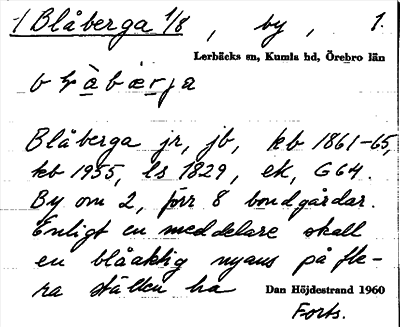 Blåberga 1/8, by, 1.
Lerbäcks sn, Kumla hd, Örebro län
Blåberga jr, jb, kb 1861-65,
kb 1955, ls 1829, ek, G64.
By om 2, förr 8 bondgårdar.
Enligt en meddelare skall
en blåaktig nyans på fle-
ra ställen ha
Dan Höjdestrand 1960
Forts.